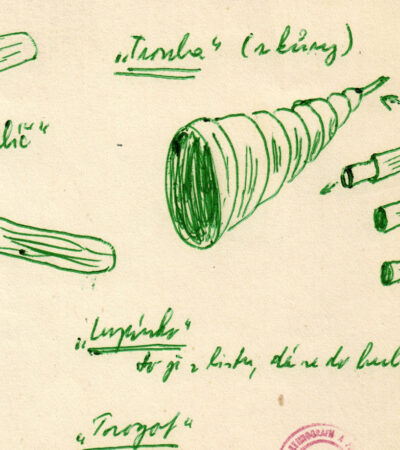 „Trouba“ (z kůry)
lič“
„Lupínko“
z listu, dá se do
„Torogot“